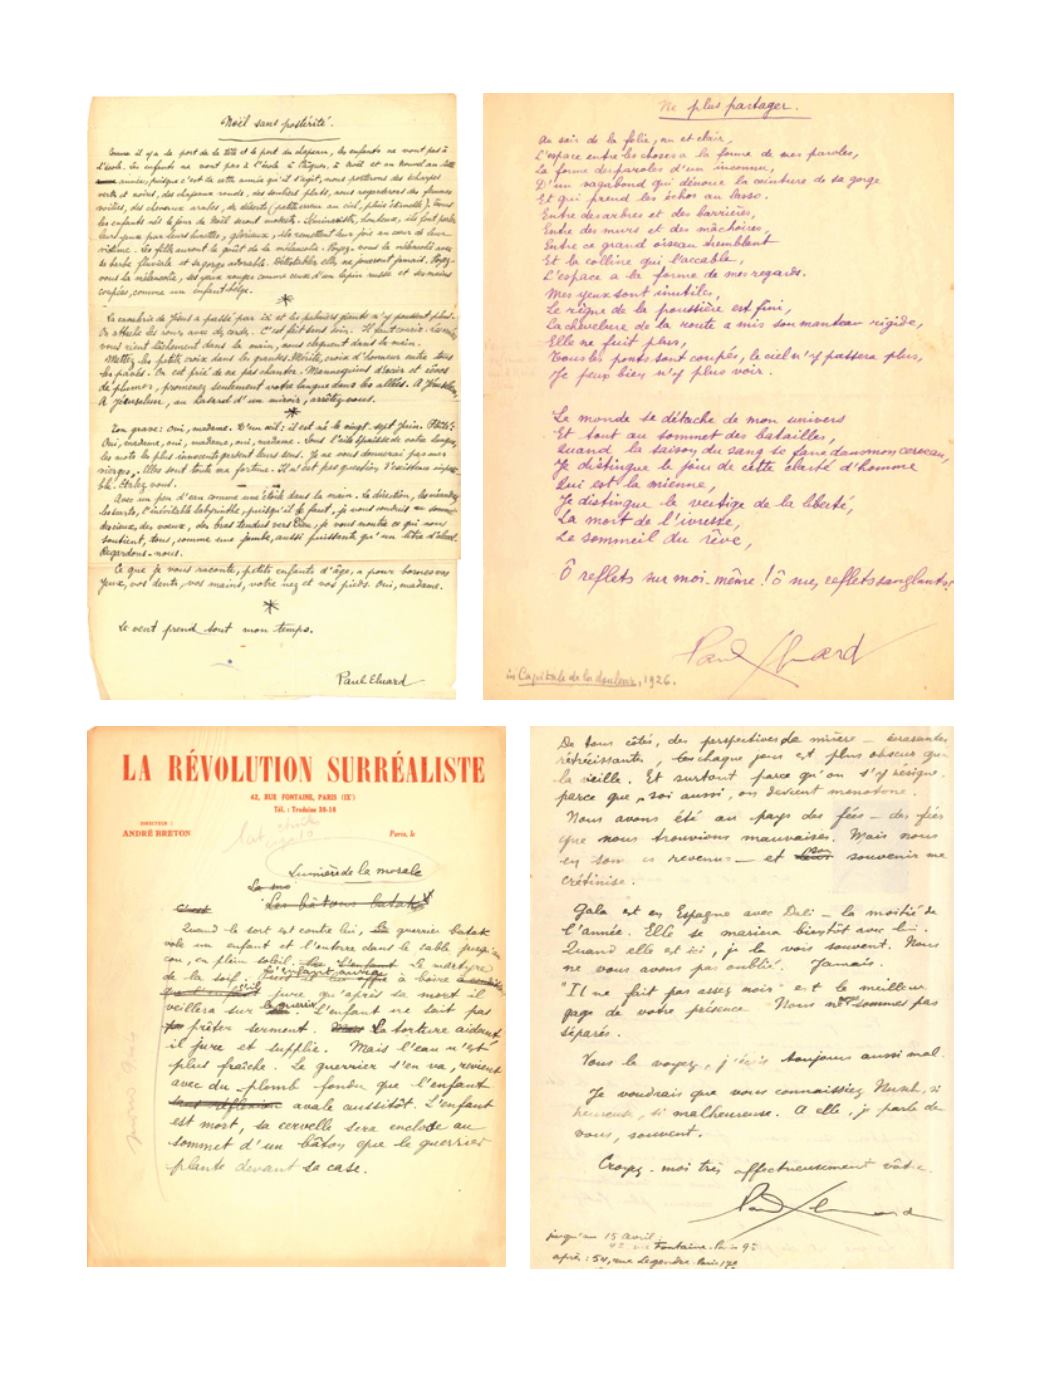 Noël sans postérité.
Comme il y a le port de la tête et le port du chapeau, les enfants ne vont pas à
l'école. Les enfants ne vont pas à l'école à Pâques, à Noël et au Nouvel an
année, puisque c'est de cette année qu'il s'agit, nous porterons des écharpes
vertes et noires, des chapeaux ronds, des souliers plats, nous regarderons des femmes
voilées, des chevaux arabes, de déserts (petite sœur au ciel, pluie éternelle). Tous
les enfants nés le jour de Noël seront
leurs yeux par leurs lunettes, glorieux, ils remettent leur joie au cœur de leur
victime. Les filles auront le goût de la mélancolie. Voyez-vous la mélancolie avec
sa barbe fluviale et sa gorge adorable. Détestables elles ne joueront jamais. Voyez-
vous la mélancolie, ses yeux rouges comme ceux d'un lapin russe et ses mains
coupées, comme un enfant belge.
La cavalerie de Jésus a passé par ici et les palmiers géants n'y poussent plus.
On attache les roues avec des cordes. C'est fait sans soin. Il faut courir.
vous rient lâchement dans la main, nous claquent dans la main.
Mettez les petites croix dans les grandes. Mérite, croix d'honneur entre tous
les pavots. On est prié de ne pas chanter. Mannequins d'acier et rêves
de plumes, promenez seulement votre langue dans les allées. A Jérusalem,
A Jérusalem, au hasard d'un miroir, arrêtez-vous.
Ton grave: Oui, madame. D'un œil: il est né le vingt-sept juin.
Oui, madame, oui, madame, oui, madame. Sous l'aile épaisse de votre langue,
les mots les plus innocents perdent leurs sens. Je ne vous donnerai pas mes
vierges. Elles sont toute ma fortune. Il n'est pas question d'existence
ble. Étalez vous.
Avec un peu d'eau comme une étoile dans la main. La direction, les méandres
les sorts, l'inévitable labyrinthe, puisqu'il le faut, je vous conduis au sommet
des cieux, des vœux, des bras tendus vers Dieu, je vous montre ce qui nous
soutient, tous, comme une jambe, aussi puissante qu'un litre d'alcool.
Regardons-nous.
Ce que je vous raconte, petits enfants d'âge, a pour bornes vos
yeux, vos dents, vos mains, votre nez et vos pieds. Oui, madame.
Le vent prend tout mon temps.
Paul Eluard
Ne plus partager.
Au soir de la folie, nu et clair,
L'espace entre les choses a la forme de mes paroles,
La forme des paroles d'un inconnu,
D'un vagabond qui dénoue la ceinture de sa gorge
Et qui prend les échos au lasso.
Entre des arbres et des barrières,
Entre des murs et des mâchoires,
Entre ce grand oiseau tremblant
Et la colline qui l'accable,
L'espace a la forme de mes regards.
Mes yeux sont inutiles,
Le règne de la poussière est fini,
La chevelure de la route a mis son manteau rigide,
Elle ne fuit plus,
Tous les ponts sont coupés, le ciel n'y passera plus,
Je peux bien n'y plus voir.
Le monde se détache de mon univers
Et tout au sommet des batailles,
Quand la saison du sang se fane dans mon cerveau,
Je distingue le jour de cette clarté d'homme
Qui est la mienne,
Je distingue le vertige de la liberté,
La mort de l'ivresse,
Le sommeil du rêve,
Ô reflets sur moi-même! ô mes reflets sanglants!
Paul Eluard
in Capitale de la douleur, 1926.
LA RÉVOLUTION SURRÉALISTE
42, RUE FONTAINE, PARIS (IXe)
Tél. : Trudaine 38-18
DIRECTEUR :
ANDRÉ BRETON
Paris, le
Lumière de la morale
La mo
Les bâtons batak
C'est
Quand le sort est contre lui, le guerrier batak
vole un enfant et l'enterre dans le sable jusqu'au
cou, en plein soleil. L'enfant Le martyre
de la soif. l'enfant ouvrage à boire
que l'enfant s'il jure qu'après sa mort il
veillera sur le guerrier. L'enfant ne sait pas
prêter serment. Mais La torture aidant
il jure et supplie. Mais l'eau n'est
plus fraîche. Le guerrier s'en va, revient
avec du plomb fondu que l'enfant
sans réflexion avale aussitôt. L'enfant
est mort, sa cervelle sera enclose au
sommet d'un bâton que le guerrier
plante devant sa case.
De tous côtés, des perspectives de misère — écrasantes
rétrécissantes, chaque jour est plus obscur que
la veille. Et surtout parce qu'on s'y résigne,
parce que, soi aussi, on devient monotone.
Nous avons été au pays des fées — des fées
que nous trouvions mauvaises. Mais nous
en sommes revenus — et son souvenir me
crétinise.
Gala est en Espagne avec Dali — la moitié de
l'année. Elle se mariera bientôt avec lui.
Quand elle est ici, je la vois souvent. Nous
ne vous avons pas oublié. Jamais.
"Il ne fait pas assez noir" est le meilleur
gage de votre présence. Nous ne sommes pas
séparés.
Vous le voyez, j'écris toujours aussi mal.
Je voudrais que vous connaissiez Nusch, si
heureuse, si malheureuse. A elle, je parle de
vous, souvent.
Croyez-moi très affectueusement vôtre.
Paul Eluard
jusqu'au 15 Avril:
42 rue Fontaine. Paris 9e
après: 54, rue Legendre. Paris 17e